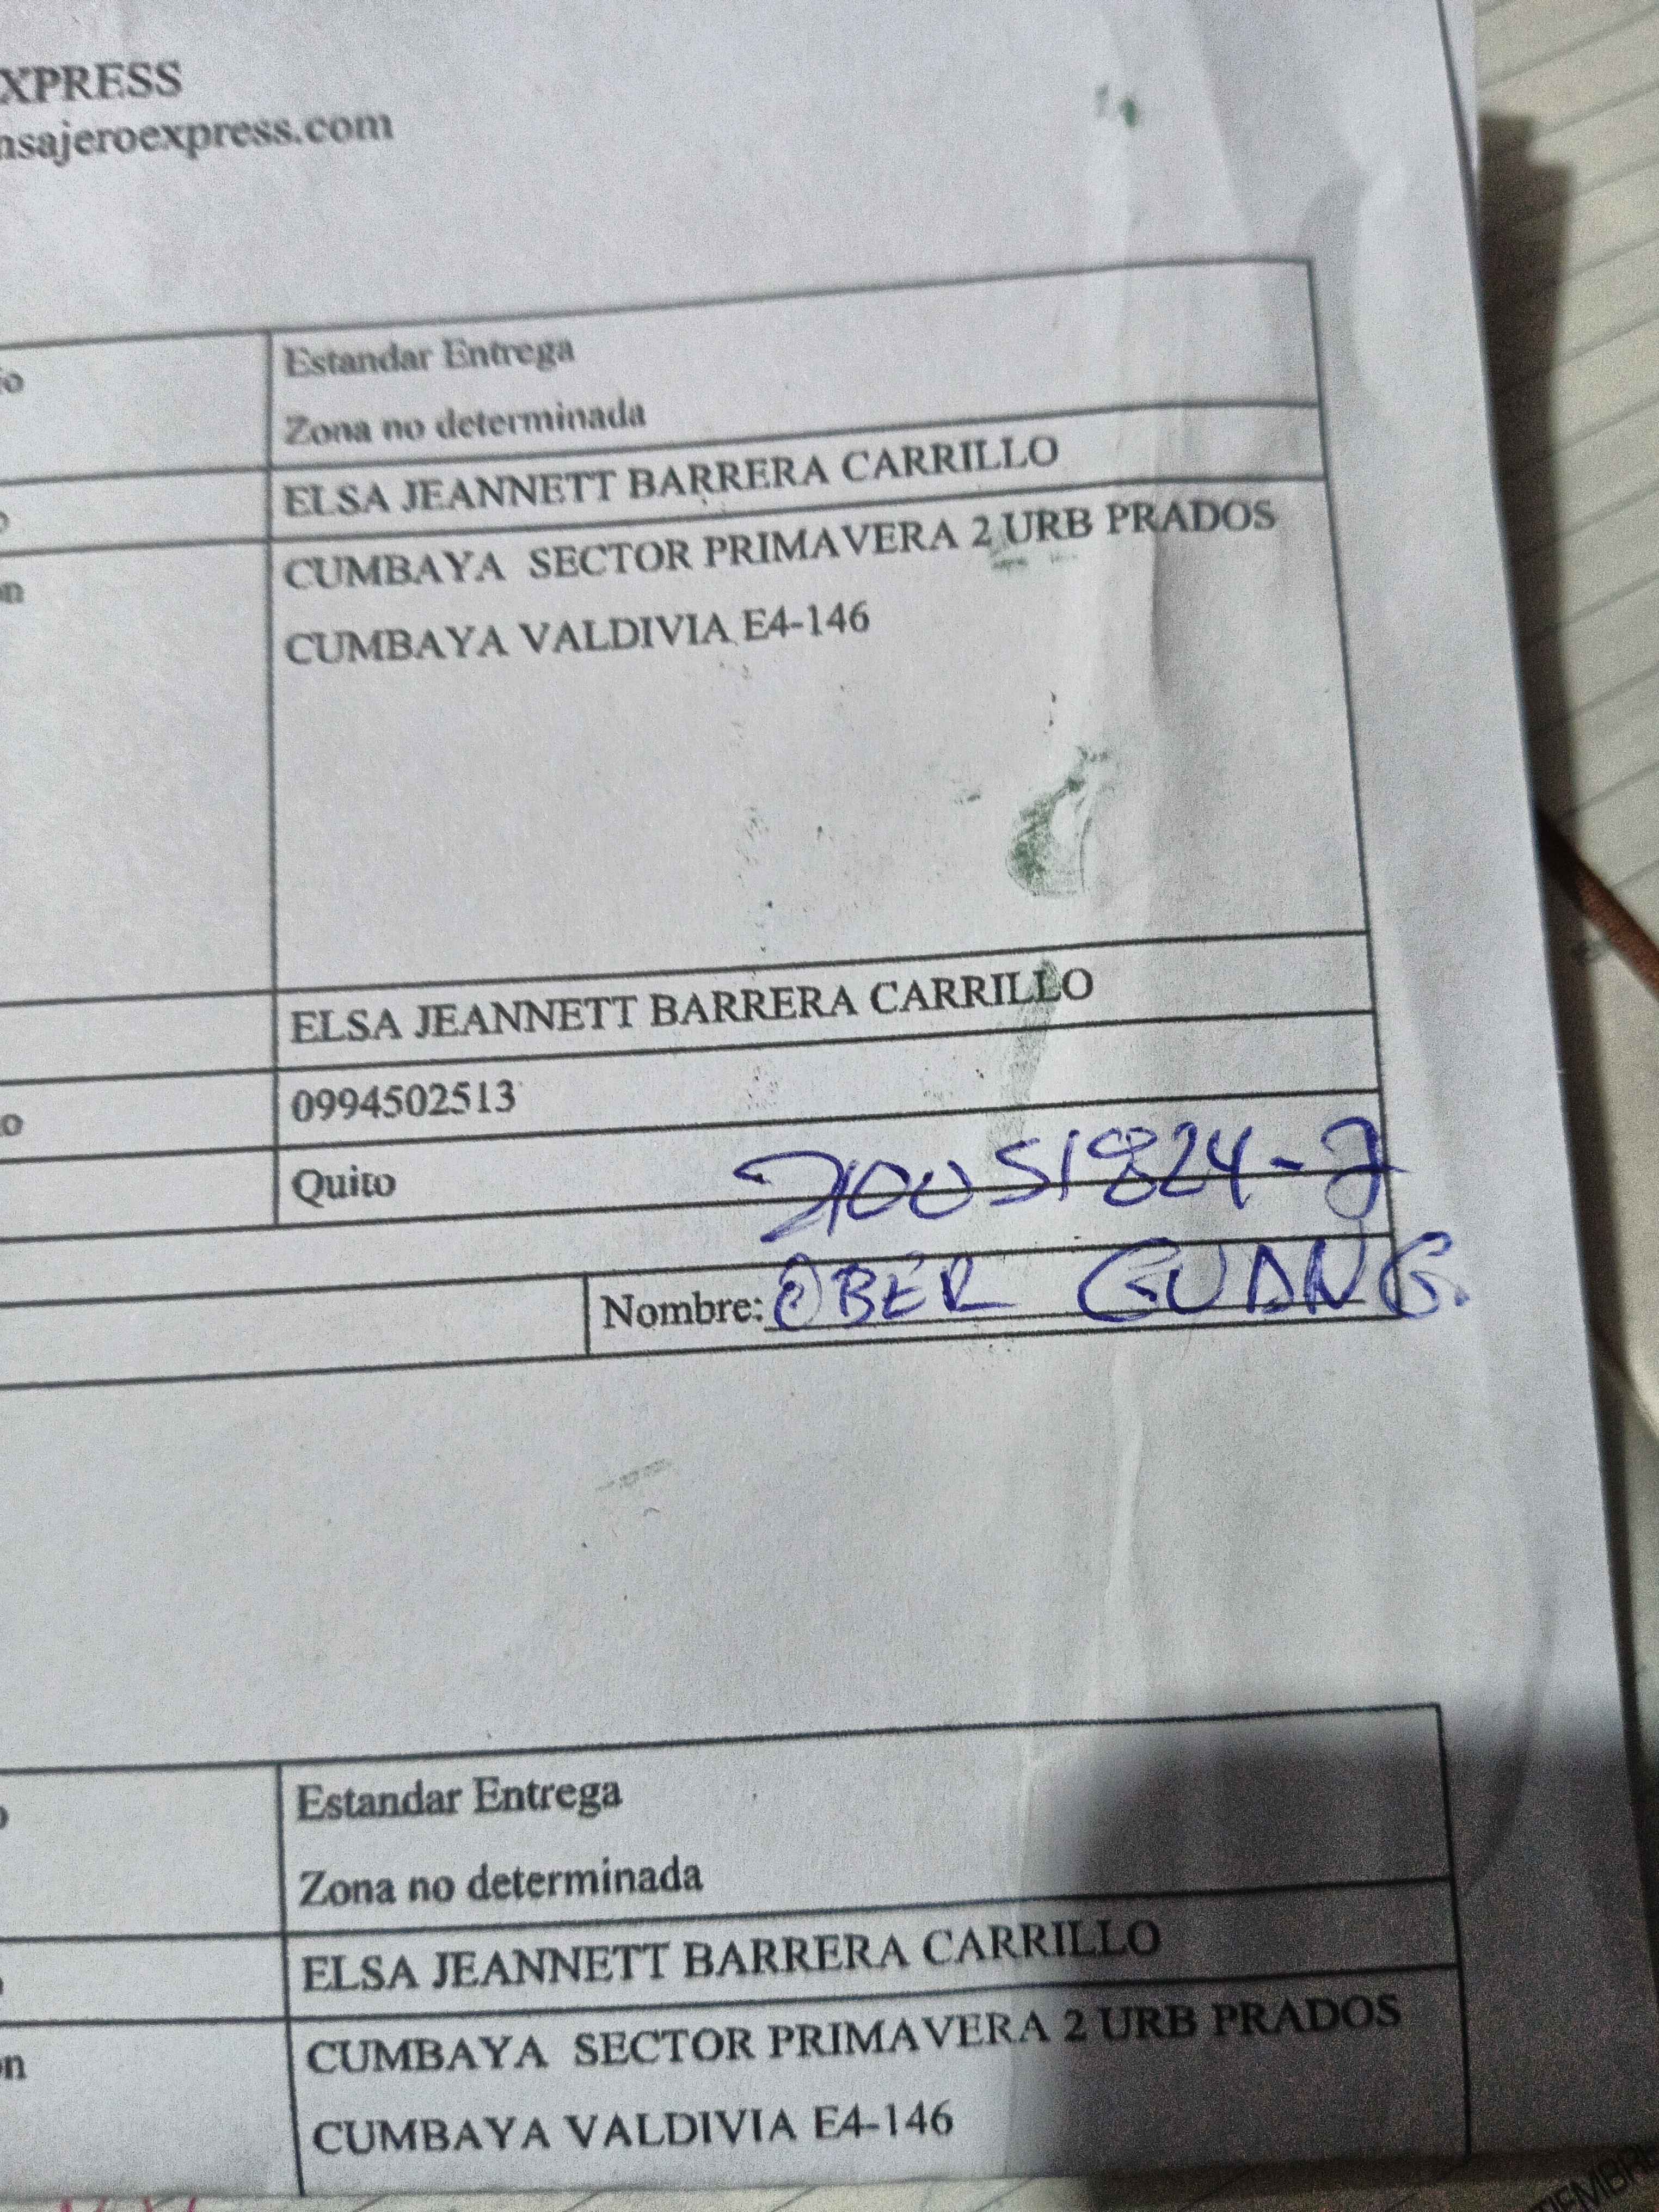 XPRESS
nsajeroexpress.com
io
Estandar Entrega
Zona no determinada
o
ELSA JEANNETT BARRERA CARRILLO
n
CUMBAYA SECTOR PRIMAVERA 2 URB PRADOS
CUMBAYA VALDIVIA E4-146
ELSA JEANNETT BARRERA CARRILLO
o
0994502513
Quito
Nombre: OBER GUANG.
o
Estandar Entrega
Zona no determinada
o
ELSA JEANNETT BARRERA CARRILLO
n
CUMBAYA SECTOR PRIMAVERA 2 URB PRADOS
CUMBAYA VALDIVIA E4-146